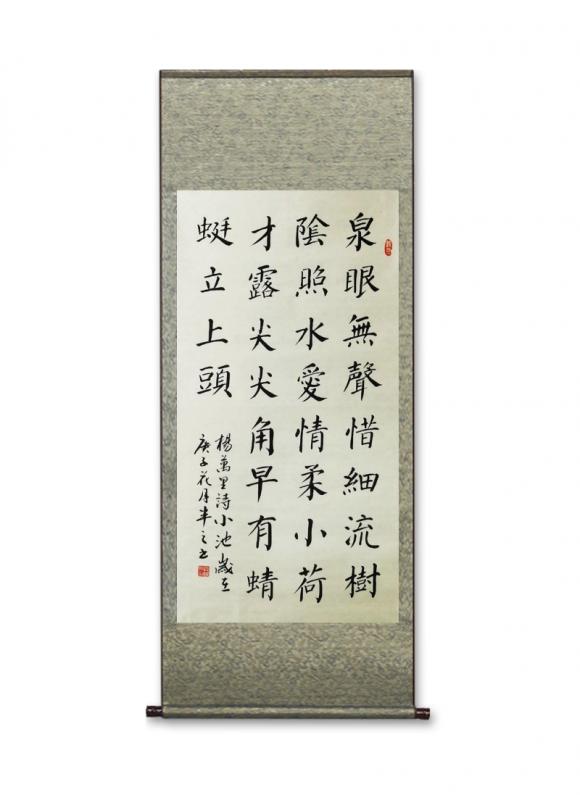 泉眼無聲惜細流樹
隂照水愛情柔小荷
才露尖尖角早有蜻
蜓立上頭
楊萬里詩小池歲在
庚子花月半之书